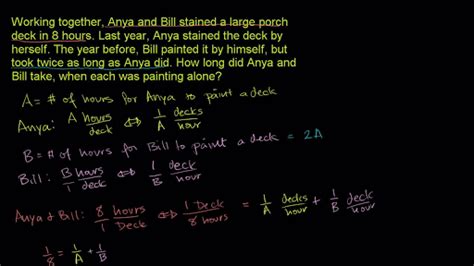 Working together, Anya and Bill stained a large porch
deck in 8 hours. Last year, Anya stained the deck by
herself. The year before, Bill painted it by himself, but
took twice as long as Anya did. How long did Anya and
Bill take, when each was painting alone?
A = # of hours for Anya to paint a deck
Anya: A hours/deck ⇔ 1/A decks/hour
B = # of hours for Bill to paint a deck = 2A
Bill: B hours/1 deck ⇔ 1/B deck/hour
Anya & Bill: 8 hours/1 Deck ⇔ 1 Deck/8 hours = 1/A decks/hour + 1/B deck/hour
1/8 = 1/A + 1/B